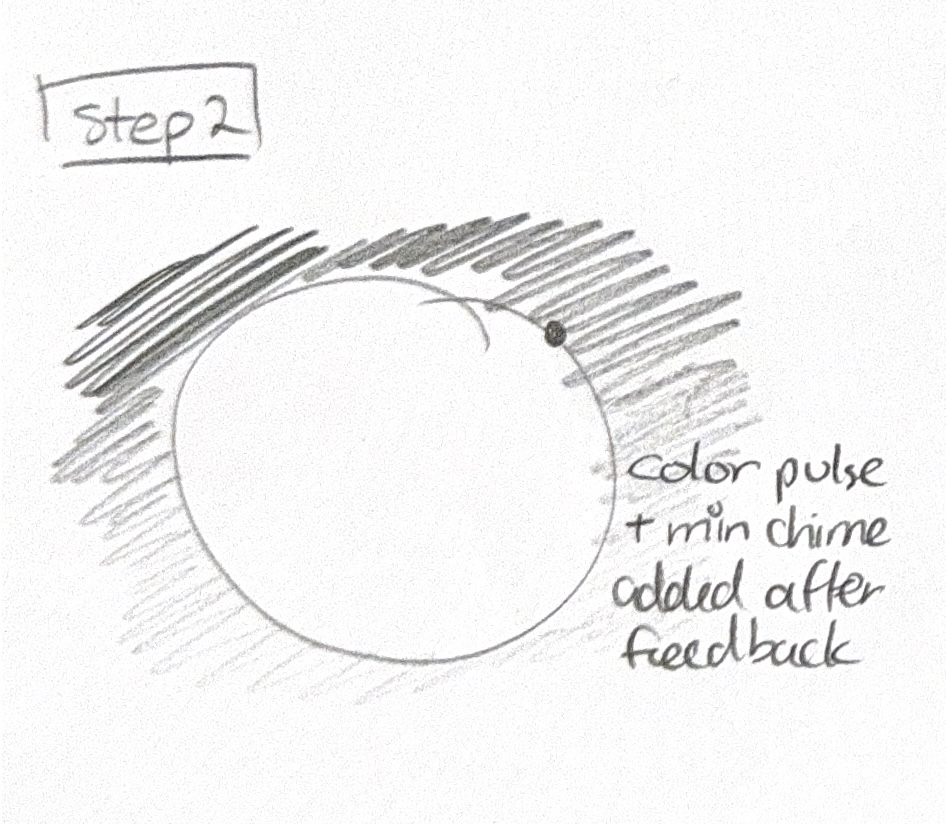 Step 2
color pulse
+ min chime
added after
feedback